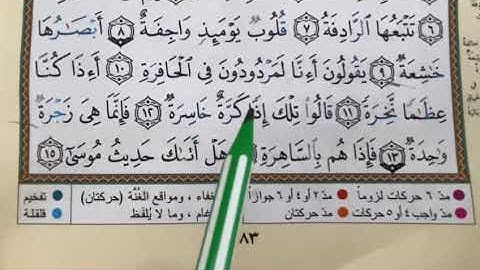 ٦ تَتْبَعُهَا ٱلرَّادِفَةُ ٧ قُلُوبٌ يَوْمَئِذٍ وَاجِفَةٌ ٨ أَبْصَٰرُهَا
خَٰشِعَةٌ ٩ يَقُولُونَ أَءِنَّا لَمَرْدُودُونَ فِي ٱلْحَافِرَةِ ١٠ أَءِذَا كُنَّا
عِظَٰمًا نَّخِرَةً ١١ قَالُوا۟ تِلْكَ إِذًا كَرَّةٌ خَاسِرَةٌ ١٢ فَإِنَّمَا هِيَ زَجْرَةٌ
وَٰحِدَةٌ ١٣ فَإِذَا هُم بِٱلسَّاهِرَةِ هَلْ أَتَىٰكَ حَدِيثُ مُوسَىٰٓ ١٥
مدّ ٦ حركات لزوماً مدّ ٢ أو ٤ أو ٦ جوازاً ، ومواقع الغُنَّة (حركتان) تفخيم
مدّ واجب ٤ أو ٥ حركات مدّ حركتان ، وما لا يُلفَظ قلقلة
٨٣